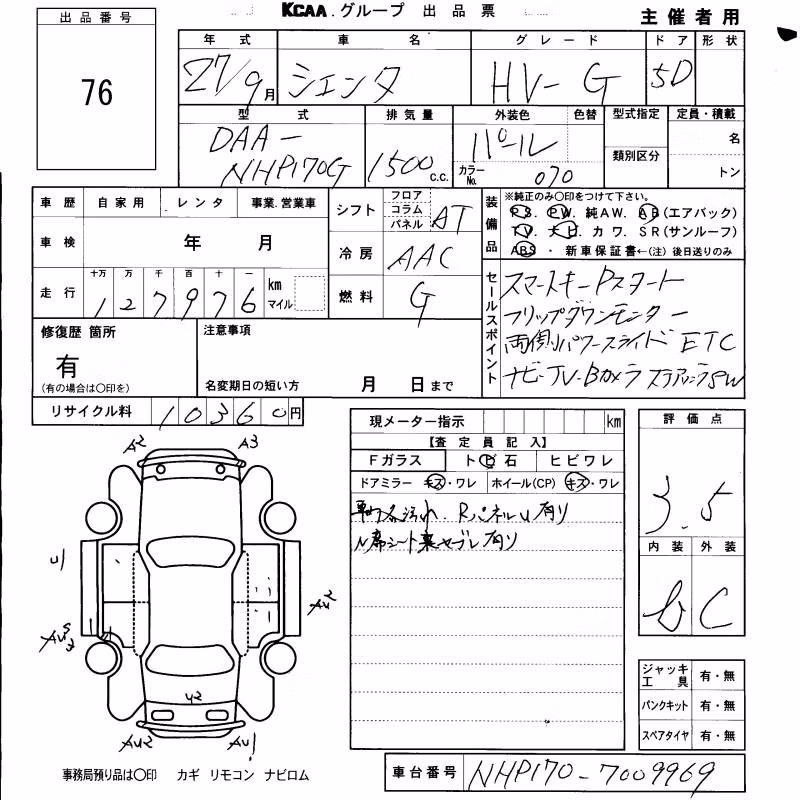 KCAA.グループ 出品票 主催者用
出品番号
76
年式 車名 グレード ドア 形状
27/9月 シエンタ HV-G 5D
型式 排気量 外装色 色替 型式指定 定員・積載
DAA-NHP170G 1500c.c. パール 名
類別区分
カラーNo. 070 トン
車歴 自家用 レンタ 事業.営業車
シフト フロア コラム パネル AT
装備品 ※純正のみ〇印をつけて下さい。
P.S. P.W. 純AW. AB(エアバック)
TV. ナビ カワ. SR(サンルーフ)
ABS・新車保証書←(注)後日送りのみ
車検 年 月
冷房 AAC
走行 十万 万 千 百 十 一 km マイル
127976
燃料 G
セールスポイント
スマートキー Pスタート
フリップダウンモニター
両側パワースライド ETC
ナビ-TV-Bカメラ ステアリングSW
修復歴 箇所
有
(有の場合は〇印を)
注意事項
名変期日の短い方 月 日まで
リサイクル料 10360円
現メーター指示 km
【査定員記入】
Fガラス トビ石 ヒビワレ
ドアミラー キズ・ワレ ホイール(CP) キズ・ワレ
車内汚れ. RパネルU有り
N席シート裏ヤブレ有り
評価点
3.5
内装 外装
b C
A2 A3
U1
AU2
U2
AU2 AU1
ジャッキ工具 有・無
パンクキット 有・無
スペアタイヤ 有・無
事務局預り品は〇印 カギ リモコン ナビロム
車台番号 NHP170-7009969